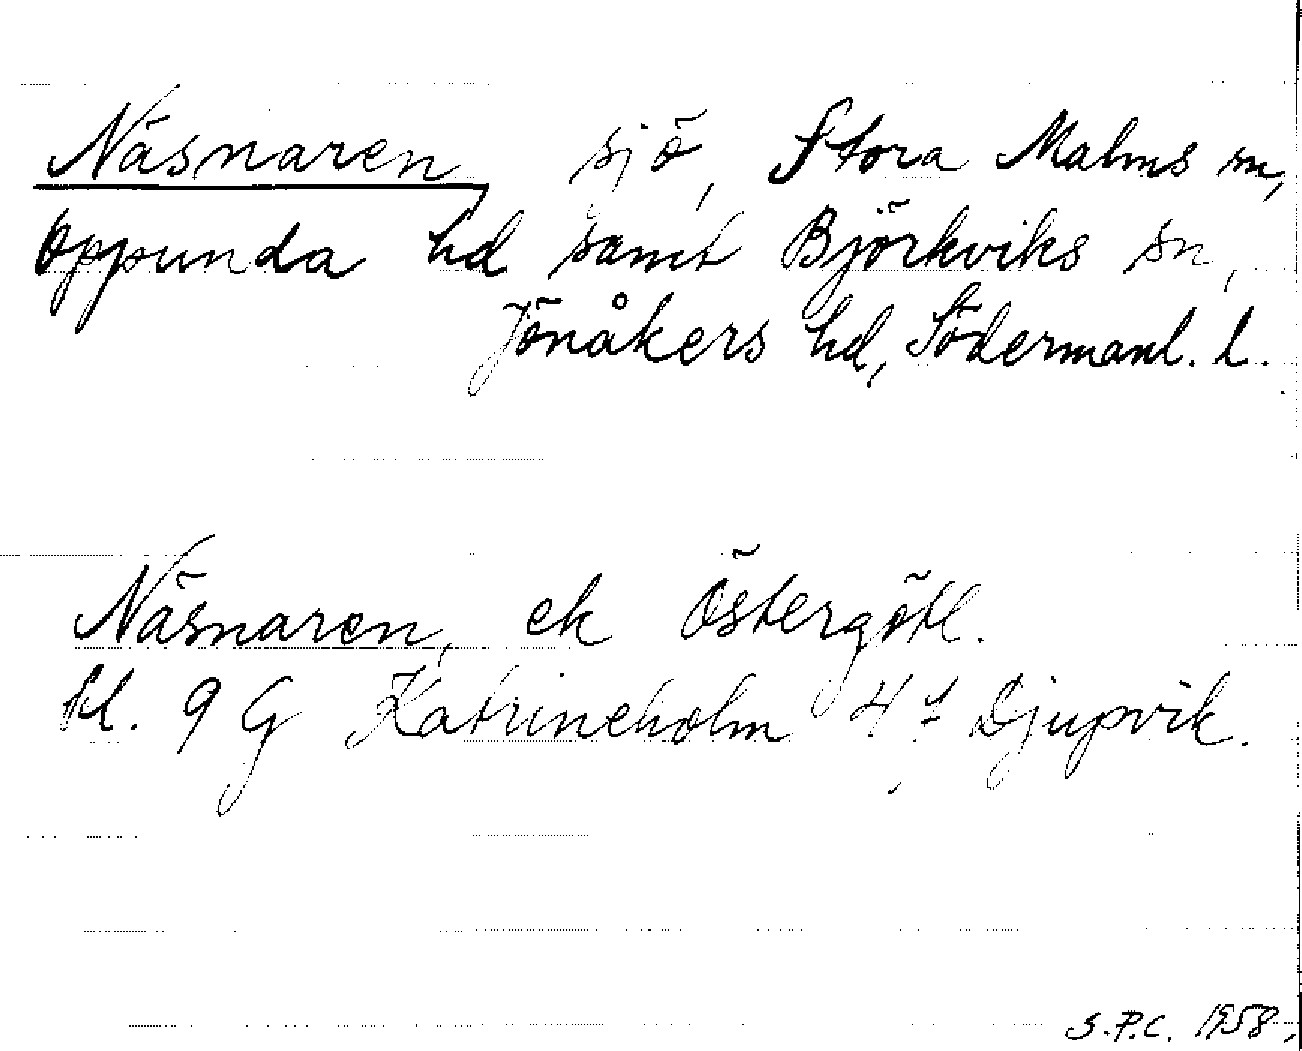 Näsnaren, sjö, Stora Malms sn,
Oppunda hd samt Björkviks sn,
Jönåkers hd, Södermanl. l.
Näsnaren, ek Östergötl.
bl. 9 G Katrineholm 4 f Djupvik.
S.P.C. 1958.